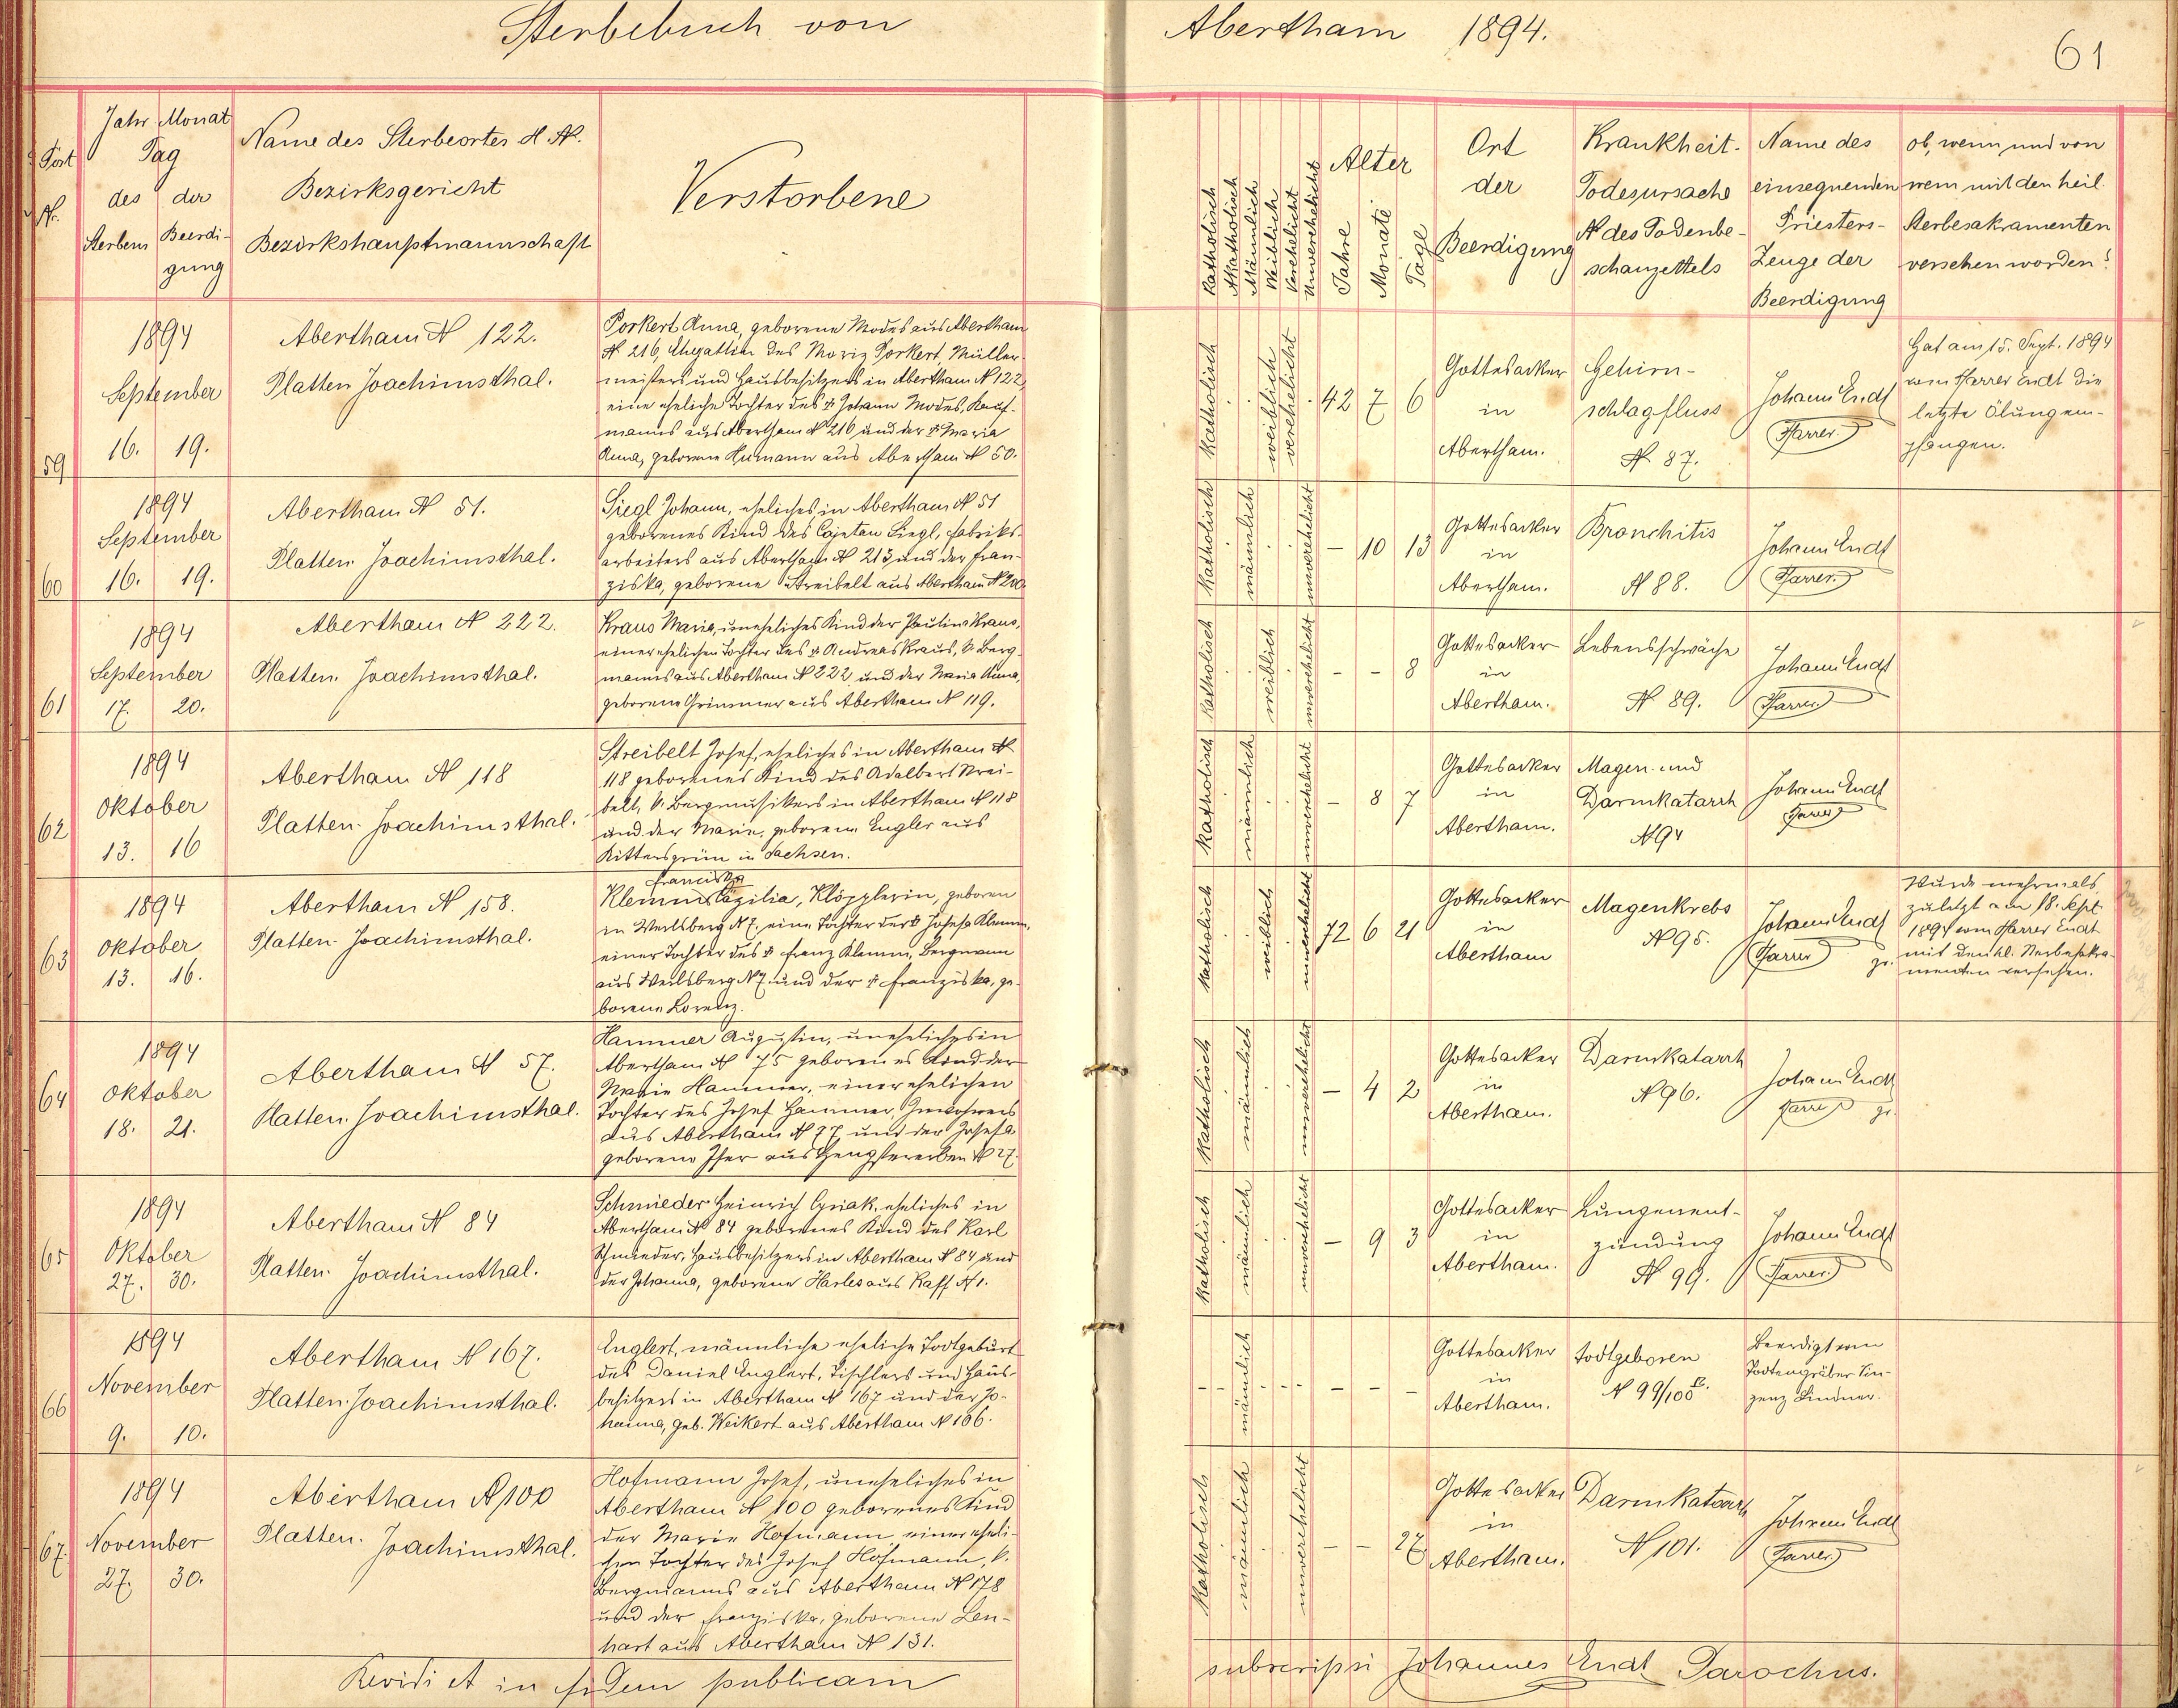 Sterbebuch von Abertham 1894.
61
Fort
Nr.
Jahr Monat
Tag
des der
Sterbens Beerdi-
gung
Name des Sterbeortes H N.
Bezirksgericht
Bezirkshauptmannschaft
Verstorbene
Katholisch
Akatholisch
Männlich
Weiblich
Verehelicht
Unverehelicht
Alter
Jahre
Monate
Tage
Ort
der
Beerdigung
Krankheit-
Todesursache
N des Todenbe-
schauzettels
Name des
einsegnenden
Priesters-
Zeuge der
Beerdigung
ob, wenn und von
wem mit den heil.
Sterbesakramenten
versehen worden?
59
1894
September
16. 19.
Abertham N 122.
Platten Joachimsthal.
Porkert Anna, geborene Modes aus Abertham
N 216, Ehegattin des Moriz Porkert, Müller-
meisters und Hausbesitzers in Abertham N 122,
eine eheliche Tochter des † Johann Modes, Kauf-
manns aus Abertham N 216 und der † Maria
Anna, geborene Humann aus Abertham N 50.
katholisch
weiblich
verehelicht
42 7 6
Gottesacker
in
Abertham.
Gehirn-
schlagfluss
N 87.
Johann Endt
Pfarrer
Hat am 15. Sept. 1894
vom Pfarrer Endt die
letzte Ölung em-
pfangen.
60
1894
September
16. 19.
Abertham N 51.
Platten Joachimsthal.
Siegl Johann, eheliches in Abertham N 51
geborenes Kind des Cajetan Siegl, Fabriks-
arbeiters aus Abertham N 213 und der Fran-
ziska, geborene Streibelt aus Abertham N 200
katholisch
männlich
unverehelicht
- 10 13
Gottesacker
in
Abertham.
Bronchitis
N 88.
Johann Endt
Pfarrer.
61
1894
September
17. 20.
Abertham N 222.
Platten. Joachimsthal.
Kraus Maria, uneheliches Kind der Paulina Kraus,
einer ehelichen Tochter des † Andreas Kraus, k. Berg-
manns aus Abertham N 222 und der Maria Anna,
geborene Grimmer aus Abertham N 119.
katholisch
weiblich
unverehelicht
- - 8
Gottesacker
in
Abertham.
Lebensschwäche
N 89.
Johann Endt
Pfarrer
62
1894
Oktober
13. 16
Abertham N 118
Platten. Joachimsthal.
Streibelt Josef, eheliches in Abertham N
118 geborenes Kind des Adalbert Strei-
belt, k. Bergmusikers in Abertham N 118
und der Marie, geborene Engler aus
Rittersgrün in Sachsen.
katholisch
männlich
unverehelicht
- 8 7
Gottesacker
in
Abertham.
Magen- und
Darmkatarrh
N 94
Johann Endt
Pfarrer
63
1894
Oktober
13. 16.
Abertham N 158.
Platten- Joachimsthal.
Franciska
Klemm Cäzilia, Klöpplerin, geboren
in Werlsberg N 7. eine Tochter der † Josefa Klemm,
einer Tochter des † Franz Klemm, Bergmann
aus Werlsberg N 7. und der † Franziska, ge-
borene Lorenz.
katholisch
weiblich
unverehelicht
72 6 21
Gottesacker
in
Abertham
Magenkrebs
N 95.
Johann Endt
Pfarrer
Wurde mehrmals,
zuletzt am 18. Sept.
1894 vom Pfarrer Endt
mit den hl. Sterbesakra-
menten versehen.
64
1894
Oktober
18. 21.
Abertham N 57.
Platten. Joachimsthal.
Hammer Augustin, uneheliches in
Abertham N 75 geborenes Kind der
Marie Hammer, einer ehelichen
Tochter des Josef Hammer, Inwohners
aus Abertham N 77 und der Josefa
geborene Iser aus Hengstererben N 27.
katholisch
männlich
unverehelicht
- 4 2
Gottesacker
in
Abertham.
Darmkatarrh
N 96.
Johann Endt
Pfarrer
65
1894
Oktober
27. 30.
Abertham N 84
Platten. Joachimsthal.
Schmieder Heinrich Cyriak, eheliches in
Abertham N 84 geborenes Kind des Karl
Schmieder, Hausbesitzers in Abertham N 84 und
der Johanna, geborene Harles aus Kaff N 1.
katholisch
männlich
unverehelicht
- 9 3
Gottesacker
in
Abertham.
Lungenent-
zündung
N 99.
Johann Endt
Pfarrer.
66
1894
November
9. 10.
Abertham N 167.
Platten. Joachimsthal.
Englert, männliche eheliche Todtgeburt
des Daniel Englert, Tischlers und Haus-
besitzers in Abertham N 167 und der Jo-
hanna, geb. Weikert aus Abertham N 166.
männlich
- - -
Gottesacker
in
Abertham.
todtgeboren
N 99/100
Beerdigt vom
Todtengräber Vin-
zenz Lindner.
67.
1894
November
27. 30.
Abertham N 100
Platten. Joachimsthal.
Hofmann Josef, uneheliches in
Abertham N 100 geborenes Kind
der Marie Hofmann einer eheli-
chen Tochter des Josef Hofmann, k.
Bergmanns aus Abertham N 178
und der Franziska, geborene Len-
hart aus Abertham N 131.
katholisch
männlich
unverehelicht
- - 27
Gottesacker
in
Abertham.
Darmkatarrh
N 101.
Johann Endt
Pfarrer
Revidi et in fidem publicam subscripsi Johannes Endt Parochus.